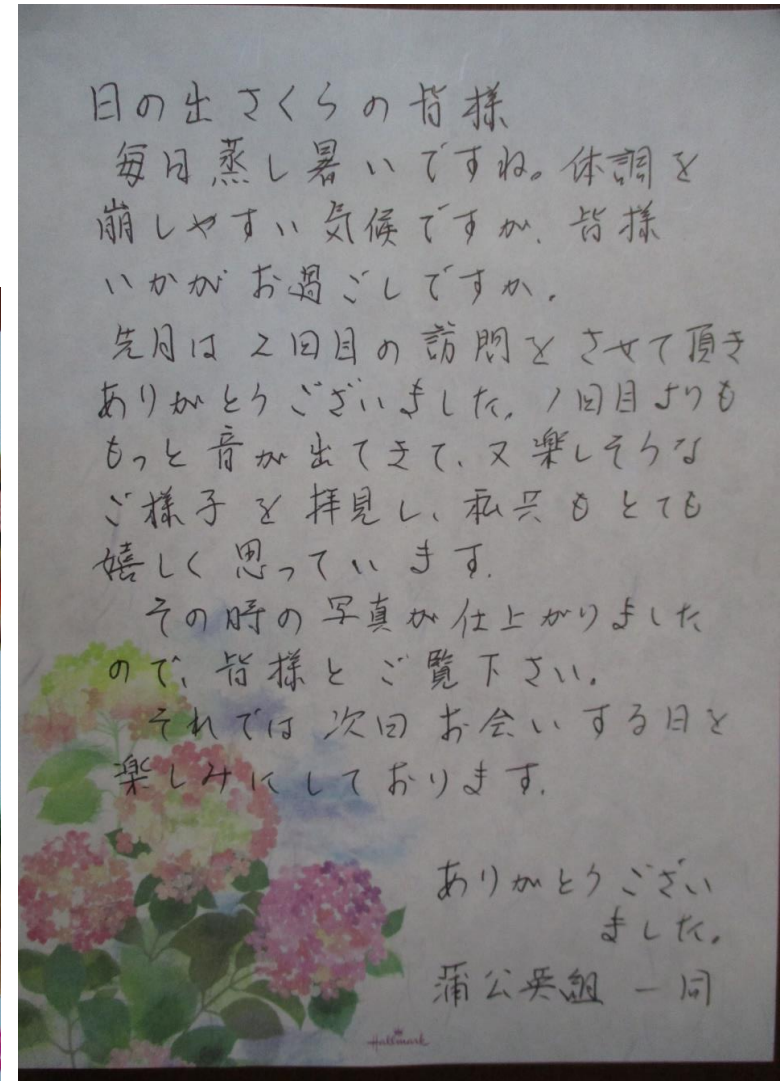 日の出さくらの皆様
毎日蒸し暑いですね。体調を
崩しやすい気候ですが、皆様
いかがお過ごしですか。
先月は2回目の訪問をさせて頂き
ありがとうございました。1回目よりも
もっと音が出てきて、又楽しそうな
ご様子を拝見し、私共もとても
嬉しく思っています。
その時の写真が仕上がりました
ので、皆様とご覧下さい。
それでは次回お会いする日を
楽しみにしております。
ありがとうござい
ました。
蒲公英組一同
Hallmark